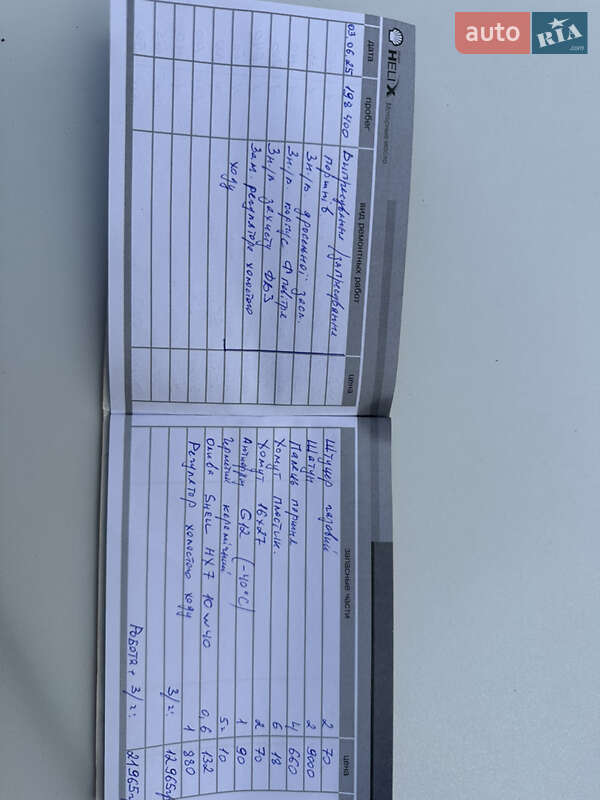 auto RIA .com
HELIX Моторные масла
дата пробег вид ремонтных работ цена
03.06.25 198 400 Випресування/запресування
поршнів
Зн./у дросельної засл.
Зн./у корпус ф. повітря
Зн./у захисту ДВЗ
Зам. регулятора холостого
ходу
запасные части цена
Штуцер газовий 2 70
Шатун 2 9000
Палець поршня 4 660
Хомут пластик. 6 18
Хомут 16x27 2 70
Антифриз G12 (-40°C) 1 90
Герметик керамічний 5г 10
Олива SHELL HX7 10w40 0,6 132
Регулятор холостого ходу 1 880
З/ч: 12965г
РОБОТА + З/ч: 21965г